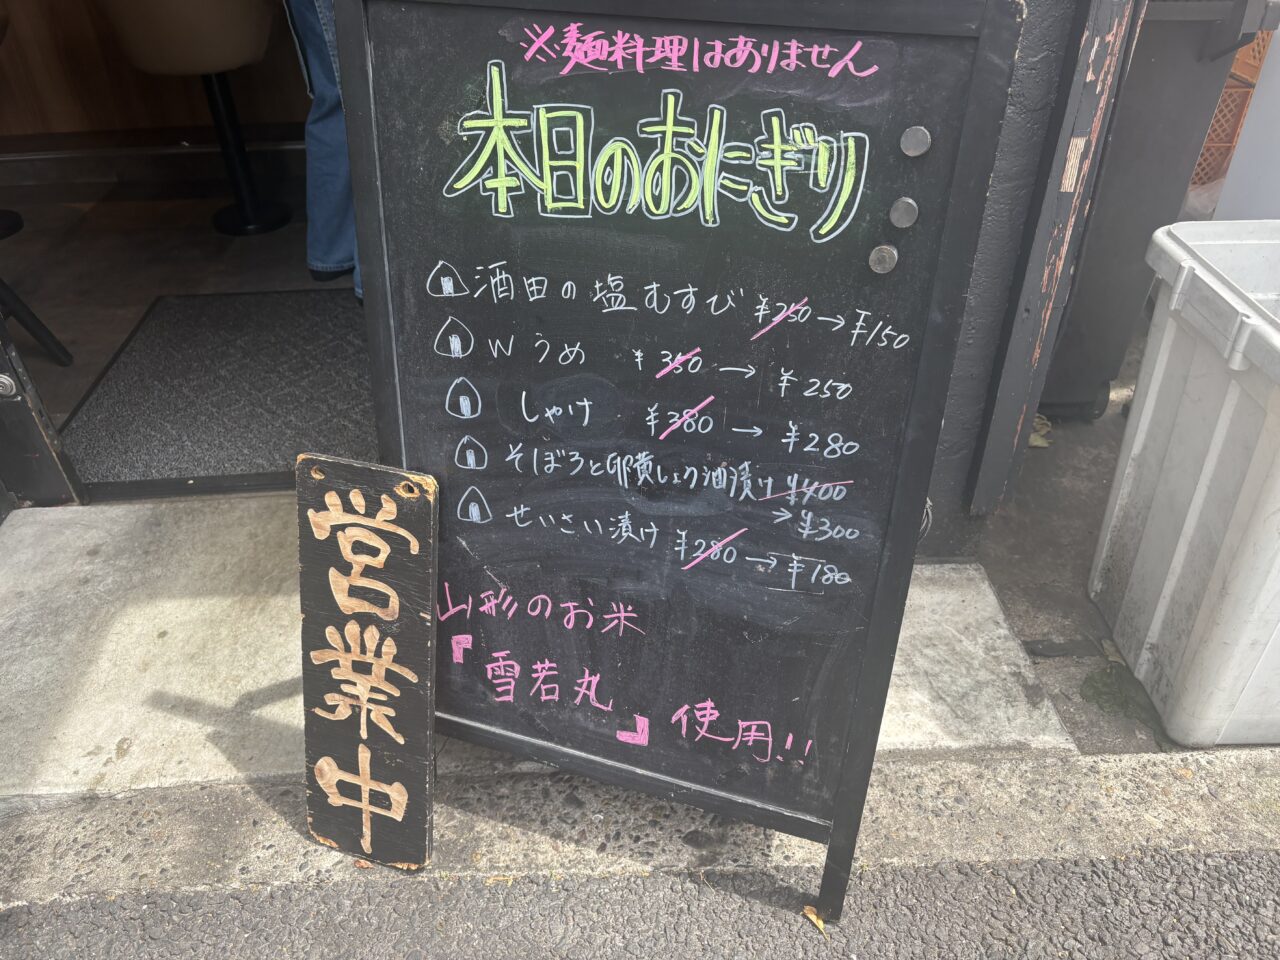 ※麺料理はありません
本日のおにぎり
酒田の塩むすび ¥250→¥150
Wうめ ¥350→¥250
しゃけ ¥380→¥280
そぼろと卵黄しょう油漬け ¥400
→¥300
せいさい漬け ¥280→¥180
山形のお米
『雪若丸』使用!!
営業中